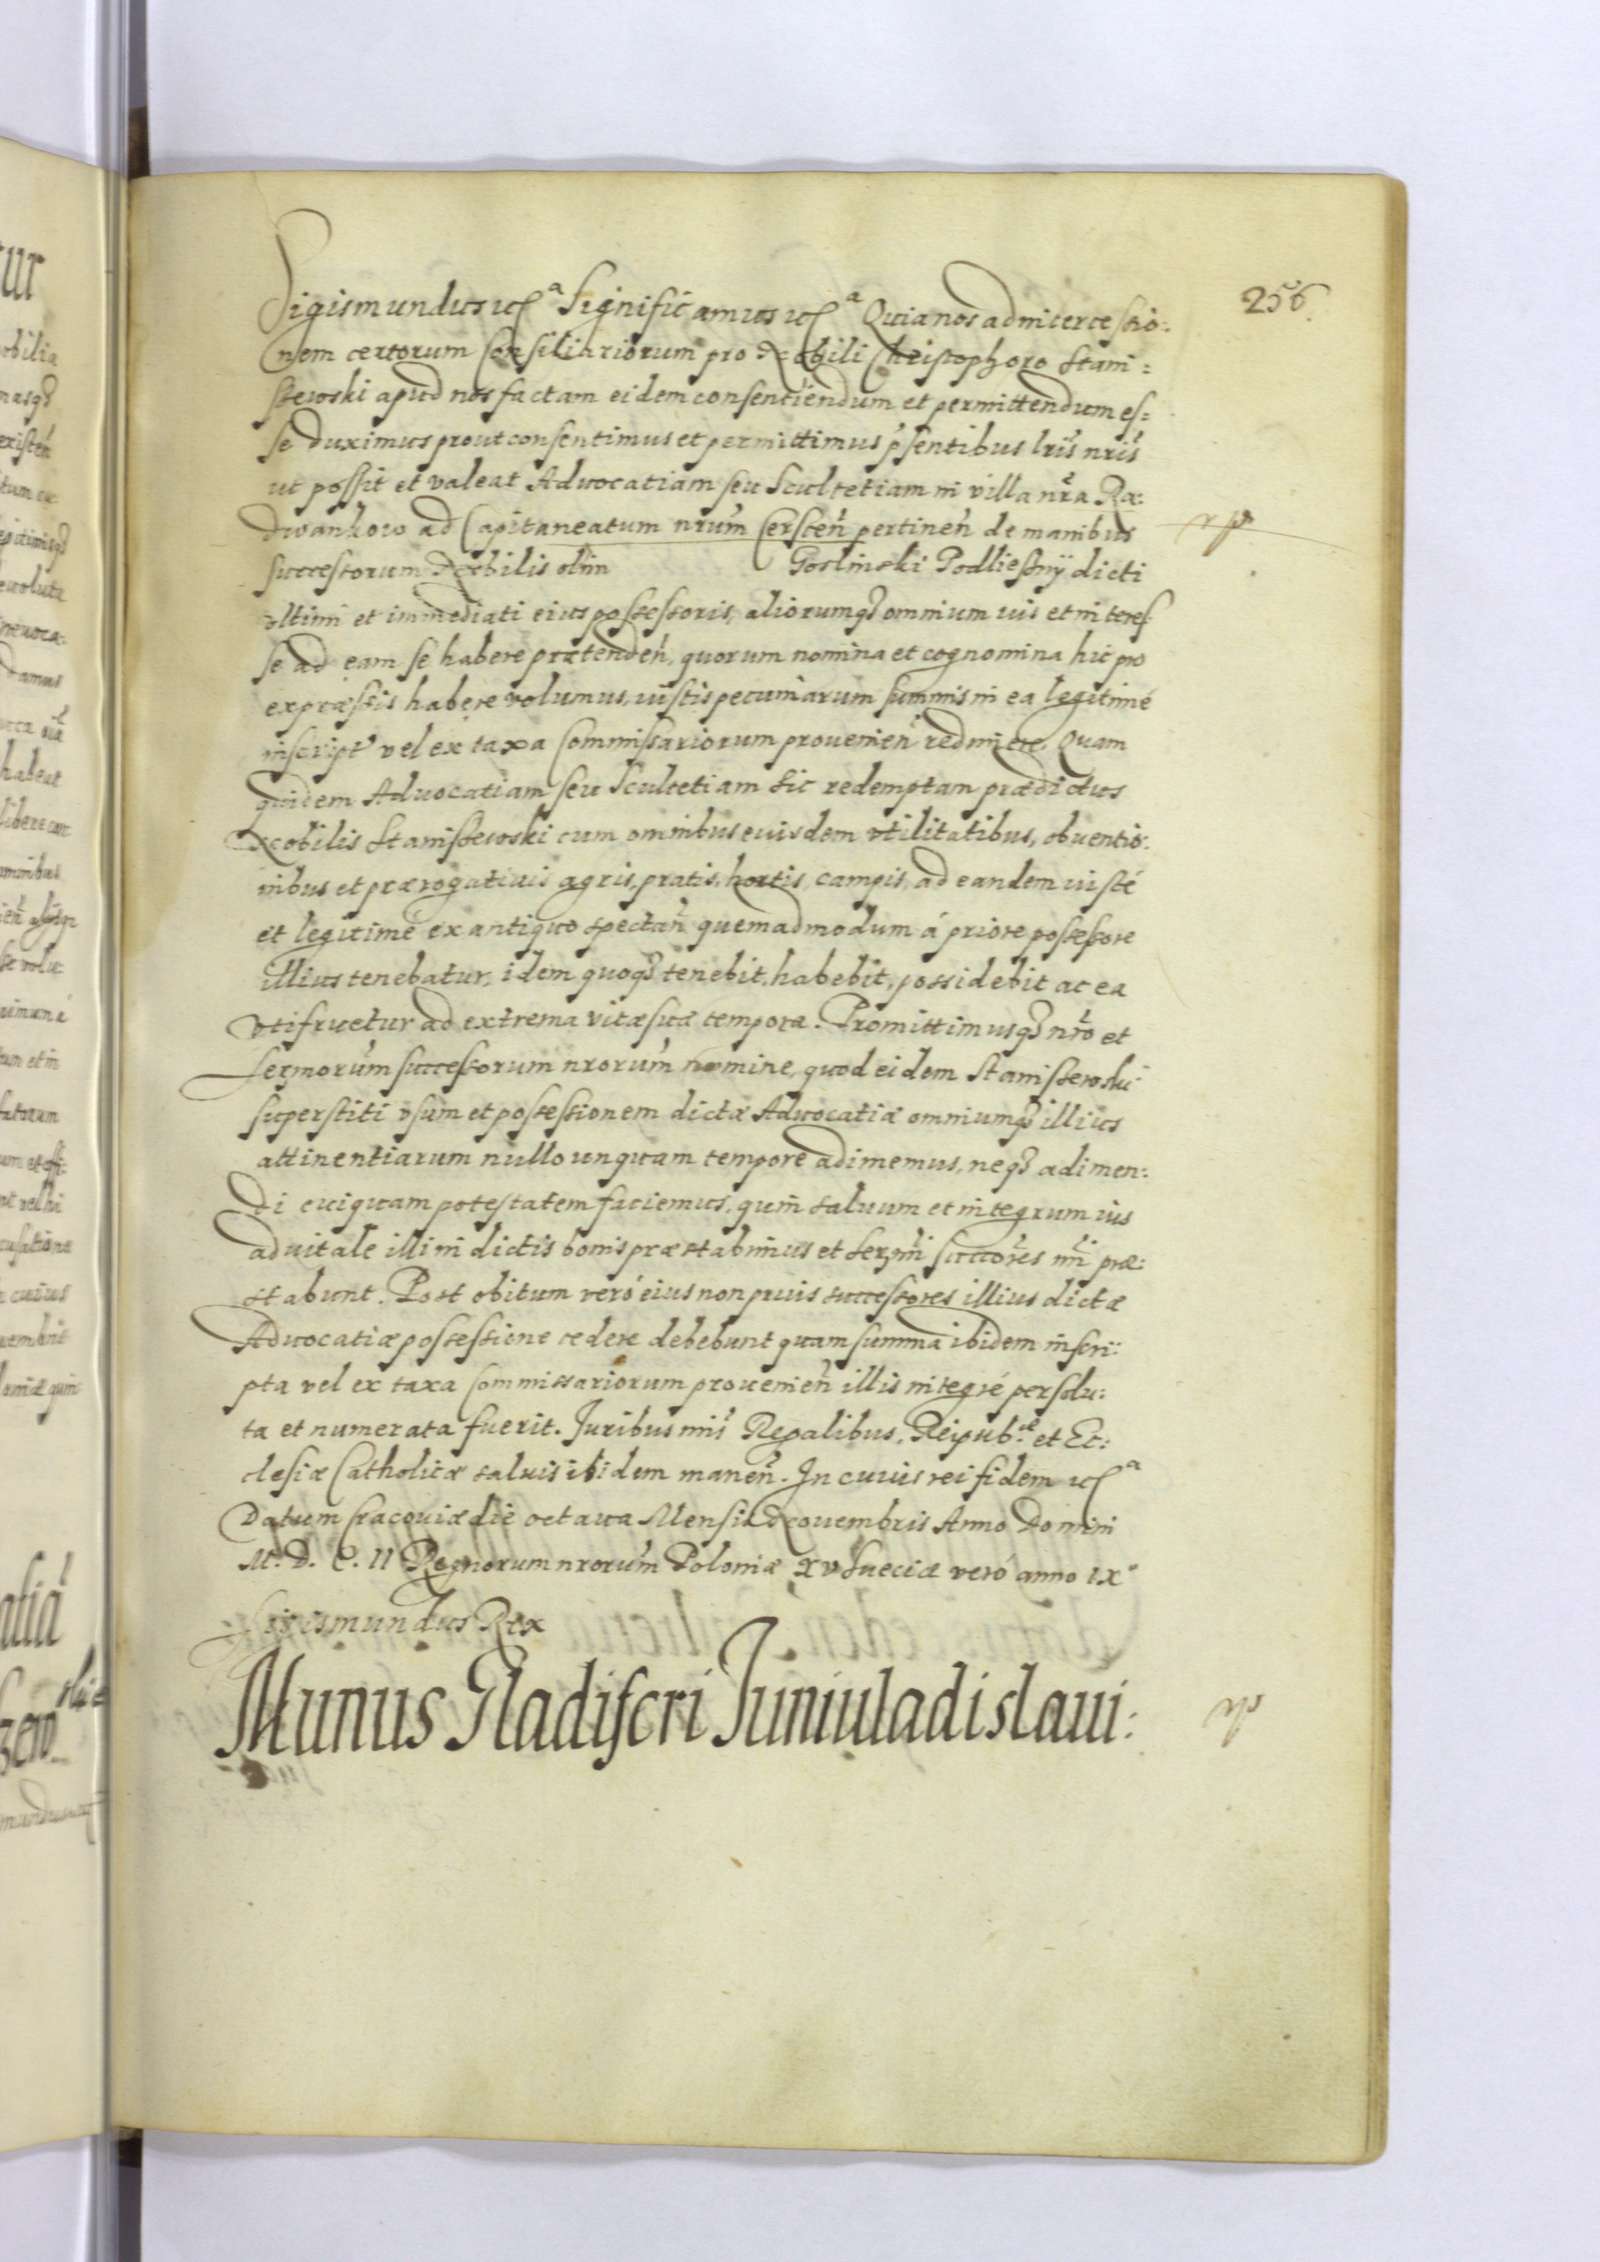 256.
Sigismundus etc.ᵃ Significamus etc.ᵃ Quia nos ad intercessio:
nem certorum Consiliariorum pro Nobili Christophoro Stani:
stewski apud nos factam eidem consentiendum et permittendum es:
se duximus prout consentimus et permittimus pñsentibus lris nris
ut possit et valeat Advocatiam seu Scultetiam in villa nrã Ra:
dwankow ad Capitaneatum nrum̃ Cersceñ pertineñ de manibus
successorum Nobilis olim Goslinski Podliesny dicti
vltimi et immediati eius possessoris, aliorumq̃ omnium ius et interes
se ad eam se habere prætendeñ, quorum nomina et cognomina hic pro
expræssis habere volumus, iustis pecuniarum summis in ea legitimé
inscript' vel ex taxa Commissariorum prouenieñ redimere. Quam
quidem Aduocatiam seu Scultetiam sic redemptan prædictus
Nobilis Stanistewski cum omnibus euisdem vtilitatibus, obuentio:
nibus et prærogatiuis agris, pratis, hortis, campis, ad eandem iusté
et legitimé ex antiquo spectañ quemadmodum á priore possessore
illius tenebatur, idem quoq̃ tenebit, habebit, possidebit ac ea
vtifruetur ad extrema vitæ suæ tempora. Promittimusq̃ nrõ et
Sermorum̃ successorum nrorum̃ nomine, quod eidem Stanistewski
superstiti vsum et possessionem dictæ Aduocatiæ omniumq̃ illius
attinentiarum nullo unquam tempore adimemus, neq̃ adimen:
di cuiquam potestatem faciemus, quin̄ saluum et integrum ius
aduitale illi in dictis bonis præstabimus et Sermi succores nri præ:
stabunt. Post obitum veró eius non prius successores illius dictæ
Aduocatiæ possessione cedere debebunt quam summa ibidem inscri:
pta vel ex taxa Commissariorum prouenieñ illis integré persolu:
ta et numerata fuerit. Juribus nris Regalibus, Reipub.æ et Ec:
clesiæ Catholicæ saluis ibidem maneñ. In cuius rei fidem etc.ᵃ
Datum Cracouiæ die octaua Mensis Nouembris Anno Domini
M. D. C. II Regnorum nrorum̃ Poloniæ XV Sueciæ veró anno IX°
Sigismundus Rex
Munus Gladiferi Juniuladislaui: